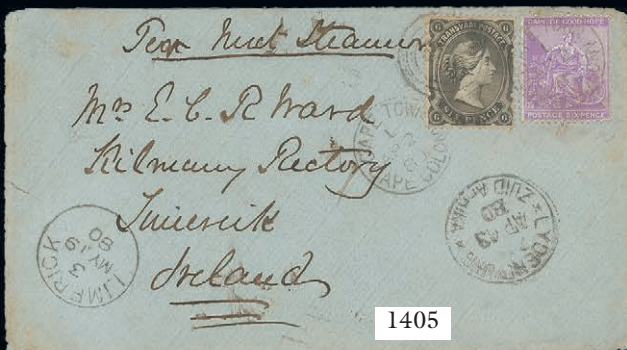 Per Next Steamer
TRANSVAAL POSTAGE
6 6
SIX PENCE
6 6
CAPE OF GOOD HOPE
POSTAGE SIX PENCE
Mrs E. C. R Ward
Kilmany Rectory
Limerick
Ireland
CAPE TOWN
CAPE COLONY
LYDENBURG
ZUID AFRIKA
AP 13
80
LIMERICK
3
MY 19
80
1405